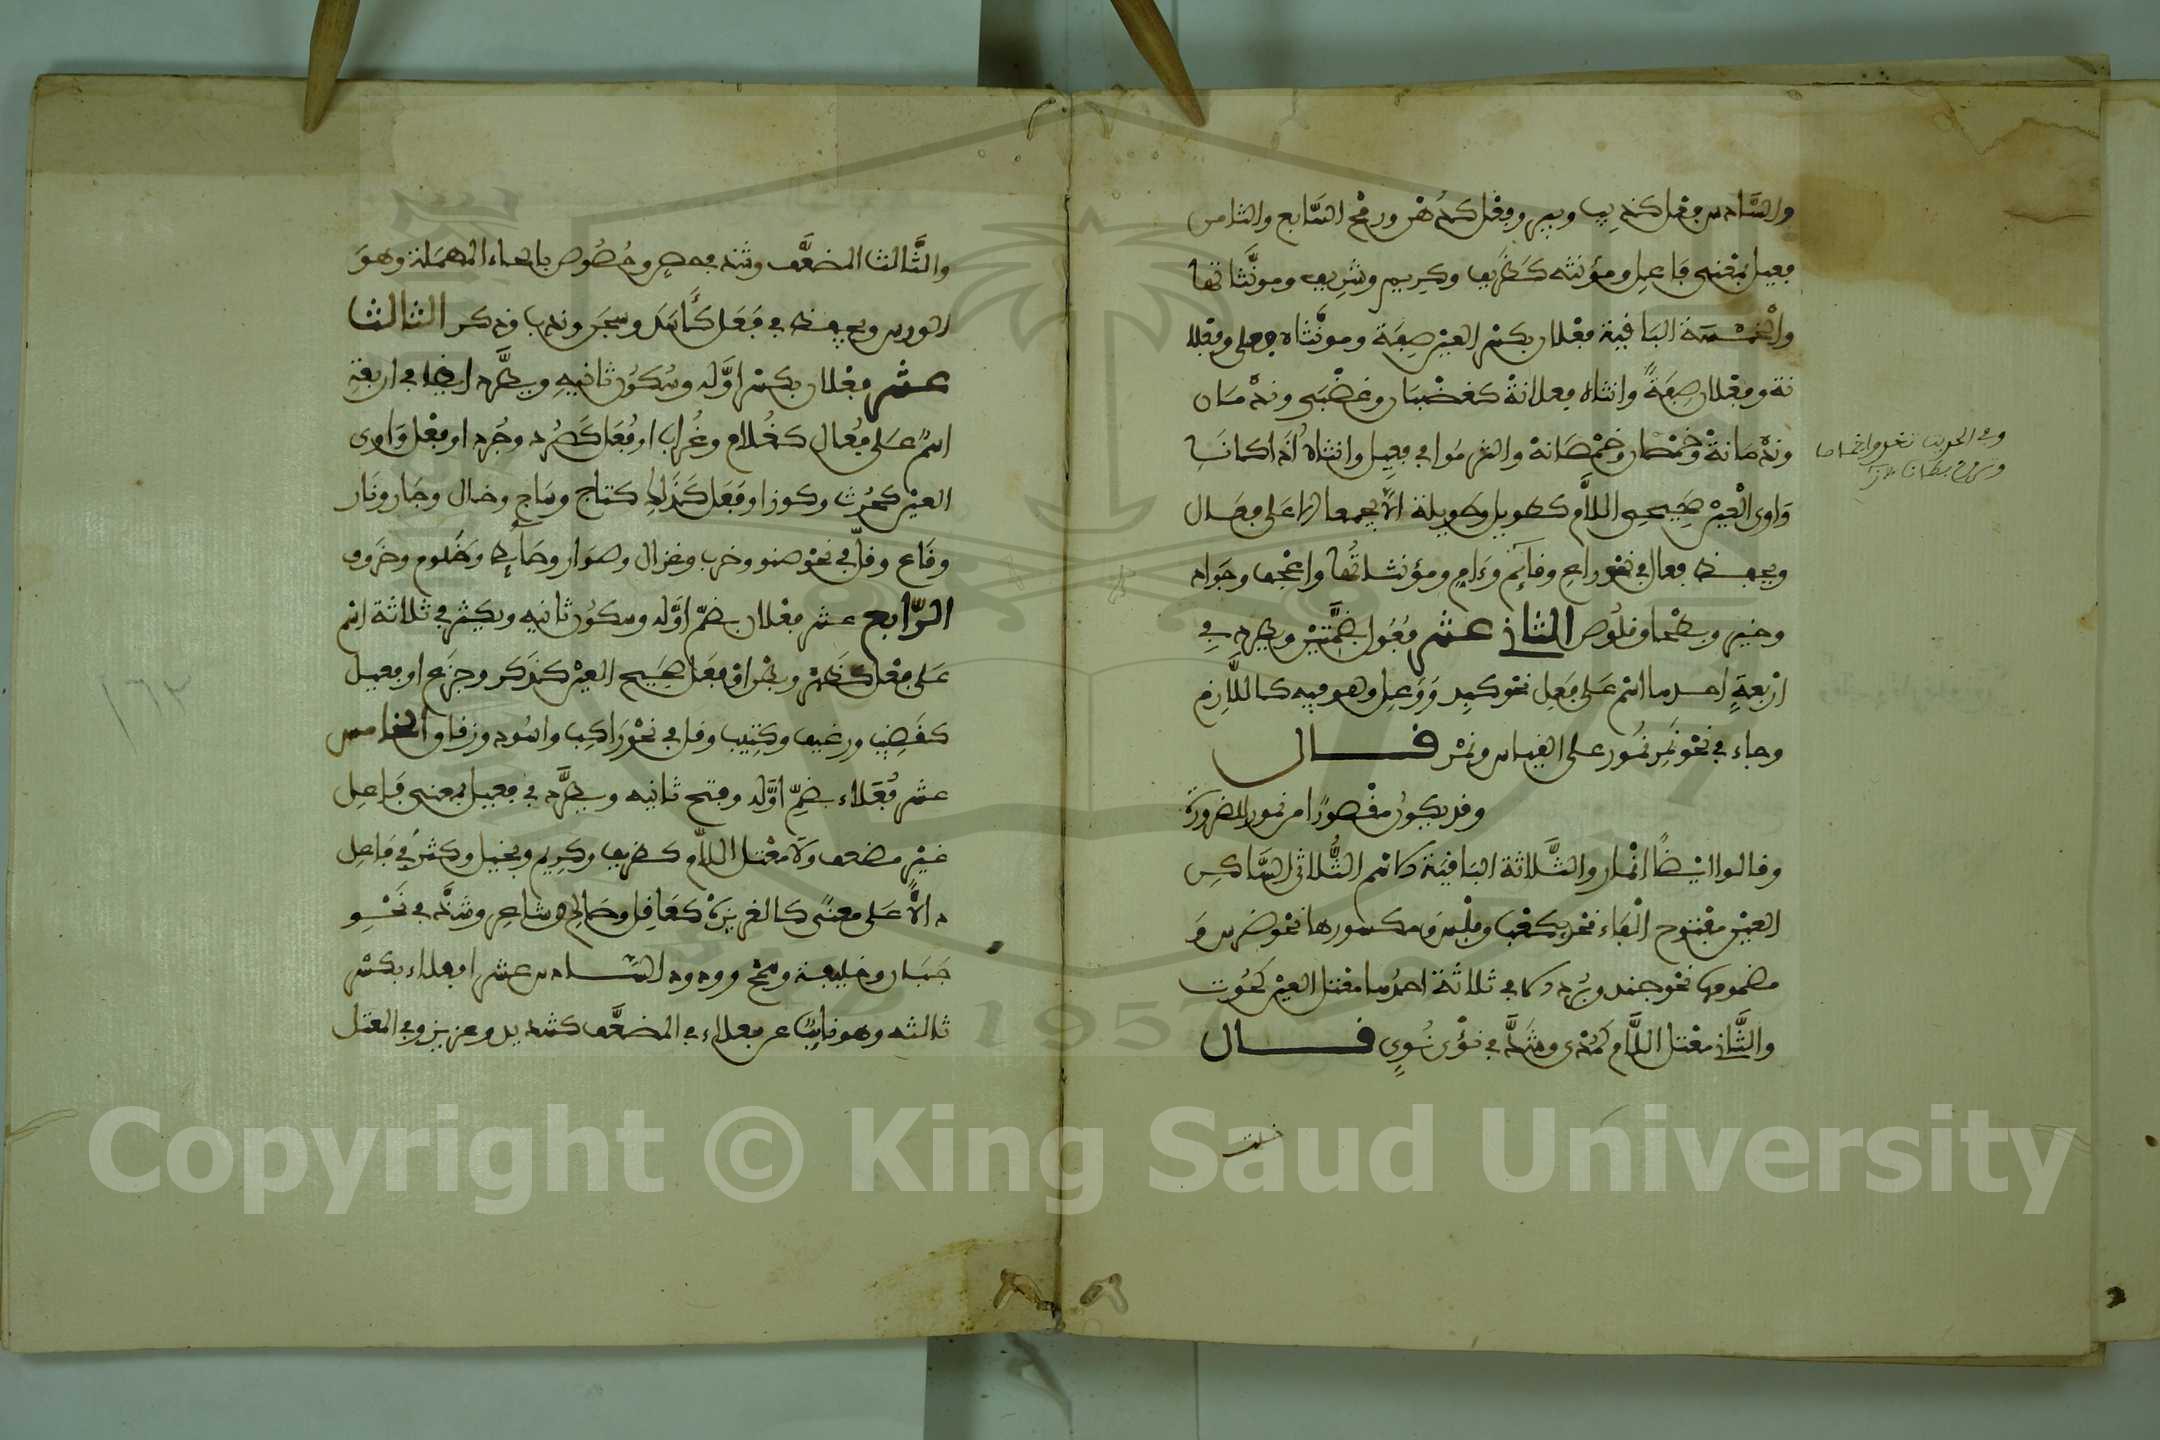 والسَّادس فِعْل كذيب وبير وفُعْل كدُهْن ورمْح السَّابع والثامن
فعيل بمعْنى فاعل ومؤنثه كظَريف وكريم وشريف ومونَّثاتها
والخمْسة الباقية فعْلان بكسْر العيْن صِفَة ومونَّثاه وفعلى وفعْلا
نة وفعْلان صِفَةً وانثاه فعلانةٌ كغضْبَان وغضْبَى وندْمَان
وندْمَانةٌ وخُمْصان وخُمْصَانة والتزمُوا في فعِيل وانثاهُ اذا كانَا
وَاوى الْعيْن صَحِيحى اللَّام كطويل وطويلة الا يجمعا الا عَلى فِعَال
ويحفظ فعال في نحْو راعٍ وقآئم وءَامٍ ومؤنثاتُها واعْجف وجَواد
وخيْر وبطْحا وقلُوص الثاني عشر فُعُول بضمَّتيْن ويطرد في
ارْبعةٍ احدها اسْم عَلى فَعِل نحْو كبِد وَوَعِل وهو فيه كاللَّازم
وجاء في نحْو نَمِر نمُور على القياس ونمْر قـــال
وقد يكونُ مقْصورًا من نمور للضرورة
وقالوا ايْضًا انْمار والثَّلاثة البَاقيَة الاسْم الثُّلاثي السَّاكن
العيْن مفْتوح الْفاء نحْو كعْب وفلْس ومكسورها نحْو ضرس وَ
مضمومها نحْو جند وبُرد الا في ثلاثَة احدُها معْتل العيْن كحُوت
والثَّاني معْتل اللَّام كمُدْى وشذَّ في نُؤْى نُوِي قـــال
والثَّالث المضعَّف وشذ في حص وحُصُوص بالحاء المهمَلة وهوَ
الورس ويحفظ في فَعَل كأسَد وشجَن وندب وذكر الثالث
عشر فِعْلان بكسْر اوَّله وسُكون ثانيهِ ويطَّرد ايضا في اربعةِ
اسْم عَلى فُعال كغُلام وغُراب او فُعَل كَصُرد وجُرد او فعْل وَاوى
العيْن كحُوت وكوز او فَعَل كَذلك كتاج وسَاج وخال وجَار ونَار
وقَاع وقلّ في نحْو صنو وخرب وغزال وصوَار وحَآئط وظَلُوم وخَروف
الرّابع عشر فعْلان بضمّ اوَّله وسكون ثانيه ويكثر في ثلاثة اسْم
عَلى فعْل كظَهْر وبطْن او فَعَل صحيح العيْن كذَكر وجزَع او فعيل
كقَضِيب ورغيف وكثيب وقل في نحْو رَاكب واسْود وزقاق الخامس
عشر فُعَلاء بضمِّ اوَّله وفتح ثانيه ويطَّرد في فعيل بمعنى فَاعِل
غيْر مضعف ولَا معْتل اللاَّم كظريف وكَريم وبخيل وكثُر في فاعِل
دالاًّ عَلى معنًى كالغريزة كعَاقِل وصَالح وشاعِر وشذَّ في نَحْـو
جَبَان وخليفة وسَمْح وودود السَّـادس عشر افعلاء بكسْر
ثالثه وهو نايبٌ عن فعلاء في المضعَّف كشديد وعزيز وفي المعتل
١٦٢